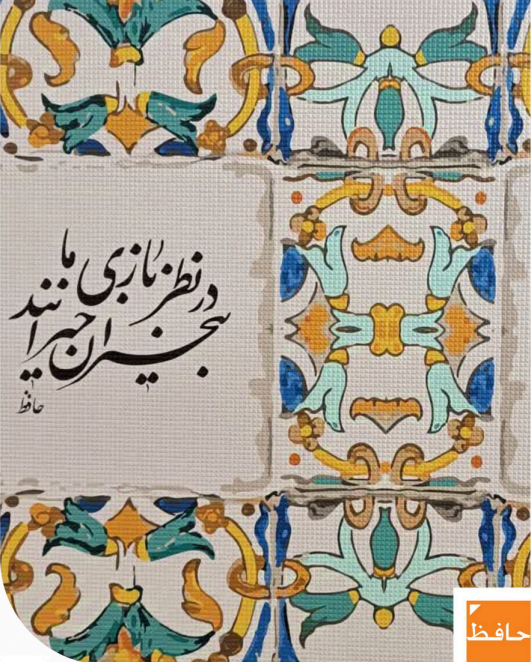 در نظربازی ما
بیخبران حیرانند
حافظ
حافظ